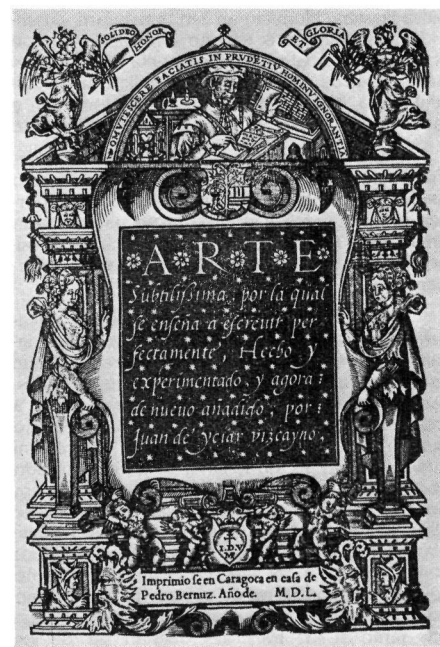 SOLI DEO
HONOR
ET
GLORIA
OBMVTESCERE FACIATIS IN PRVDĒTIV̄ HOMINV̄ IGNORANTIĀ
A R T E
Subtilißima, por la qual
se enseña a escreuir per⸗
fectamente, Hecho y
experimentado, y agora⸗
de nueuo añadido, por⸗
Juan de yciar vizcayno,
I.D.V
Imprimio se en Caragoça en casa de
Pedro Bernuz. Año de. M. D. L.